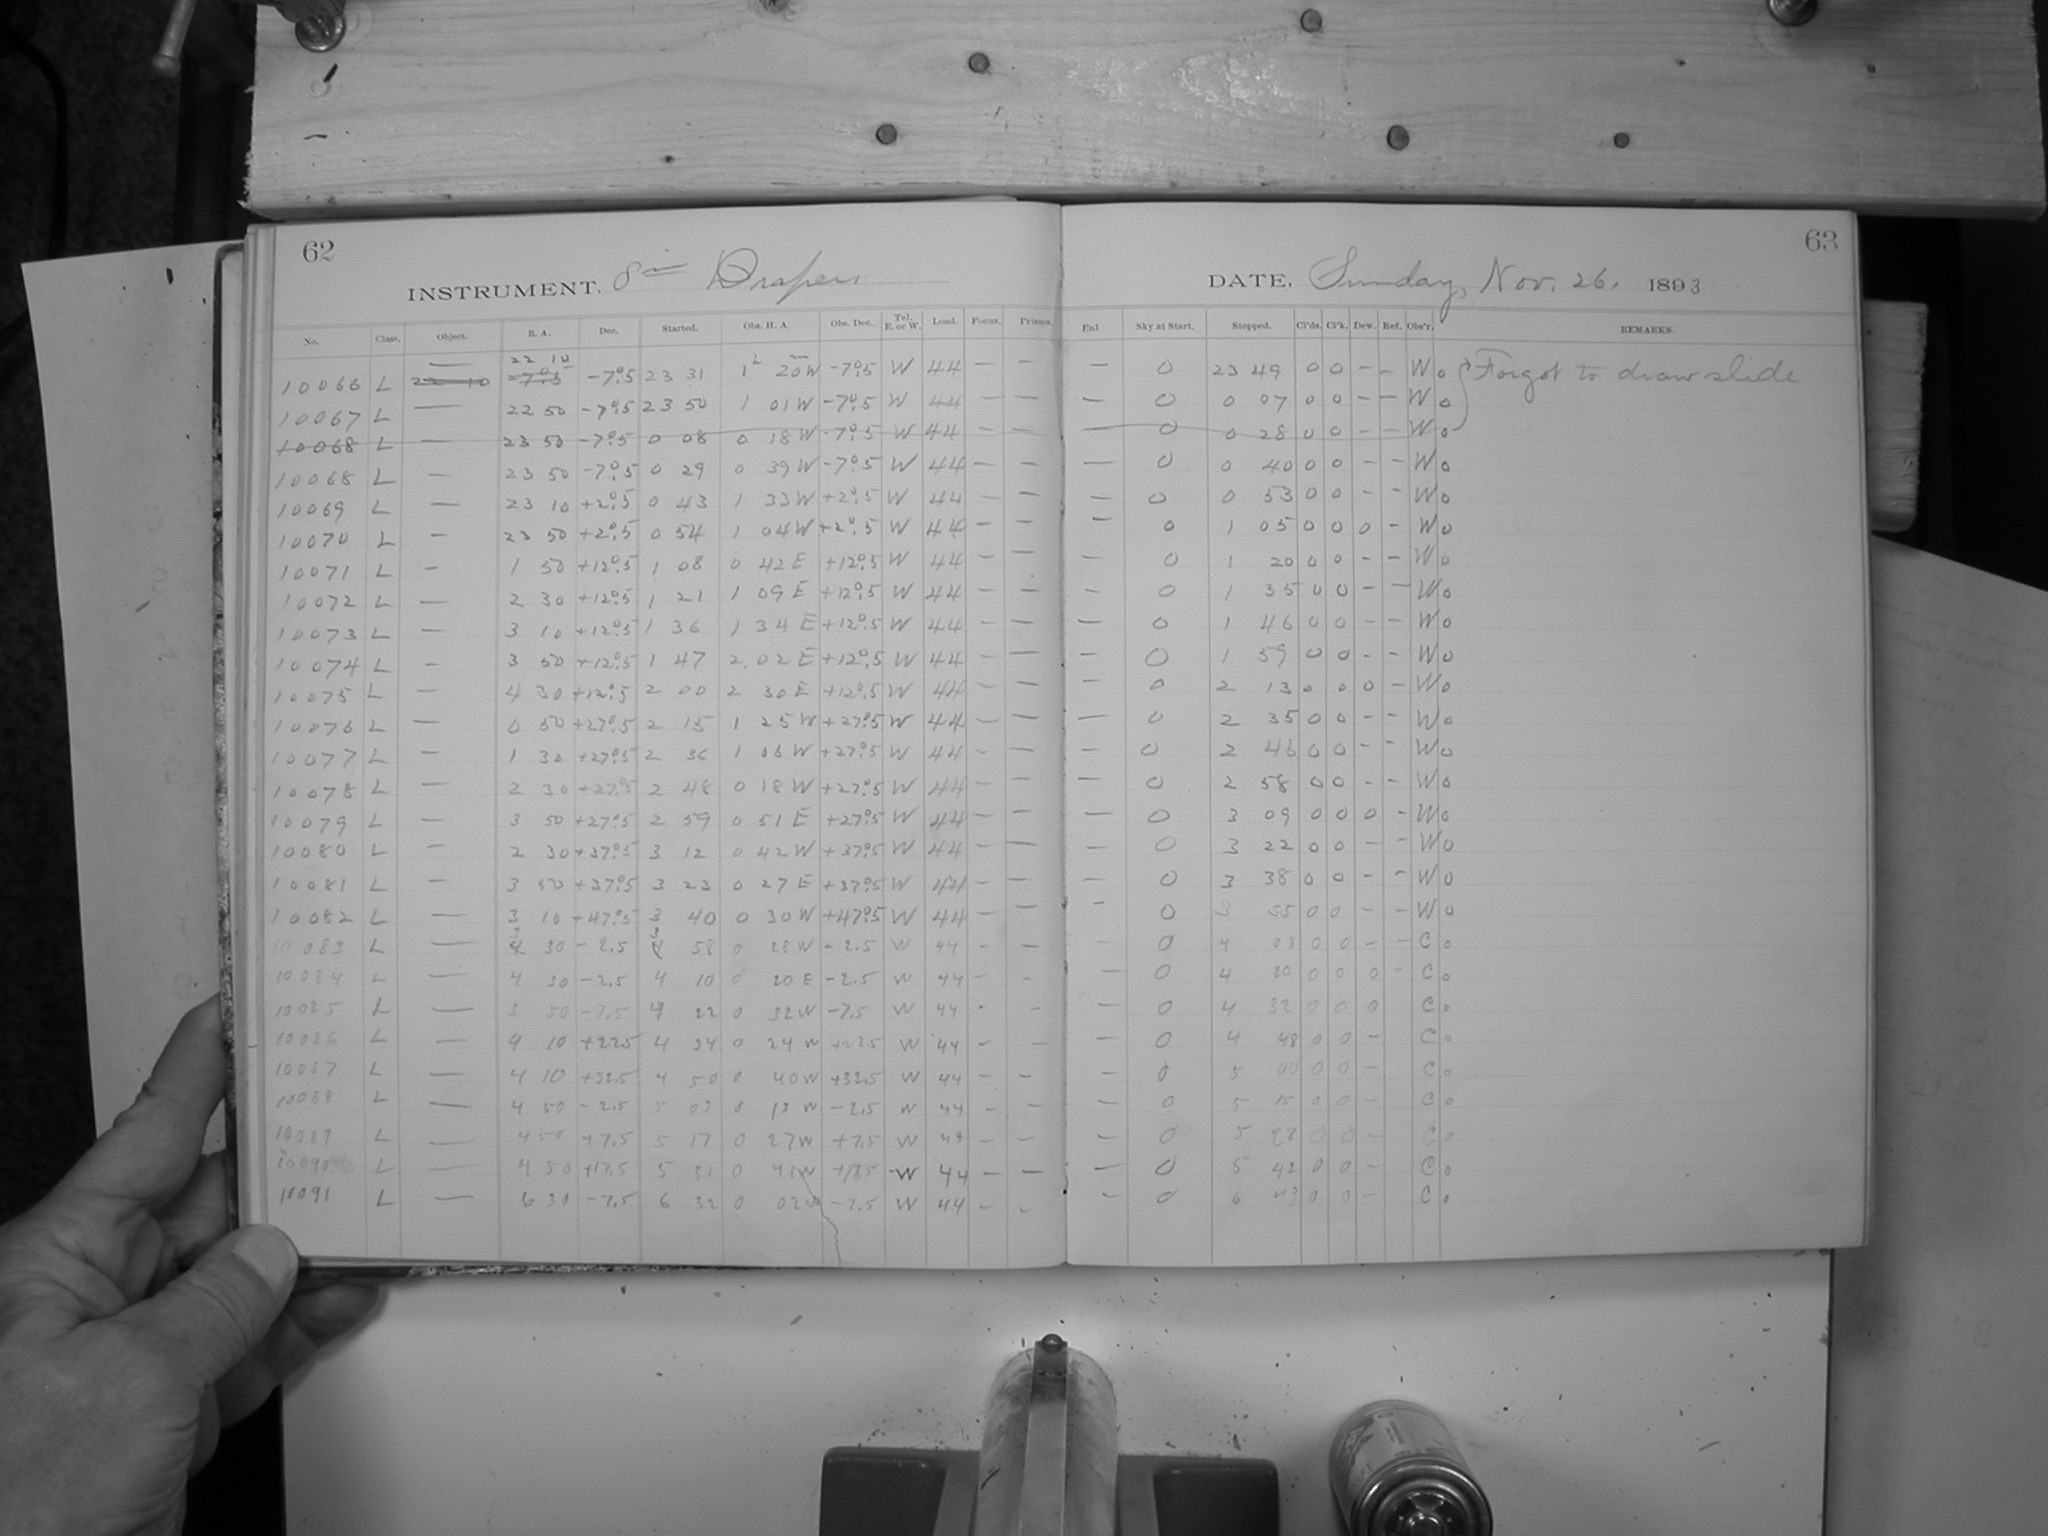 62
63
INSTRUMENT. 8 in Draper
DATE, Sunday, Nov. 26, 1893
No. Class. Object. R. A. Dec. Started. Obs. H. A. Obs. Dec. Tel. E. or W. Load. Focus. Prisms. Enl Sky at Start. Stopped. Cl'ds. Cl'k. Dew. Ref. Obs'r. REMARKS.
10066 L 22 10 — 22 10 -7°.5 -7°.5 23 31 1h 20m W -7°.5 W 44 — — — 0 23 49 0 0 - - Wo Forgot to draw slide
10067 L — 22 50 -7°.5 23 50 1 01 W -7°.5 W 44 — — — 0 0 07 0 0 - - Wo
10068 L — 23 50 -7°.5 0 08 0 18 W -7°.5 W 44 — 0 0 28 0 0 - - Wo
10068 L — 23 50 -7°.5 0 29 0 39 W -7°.5 W 44 — — — 0 0 40 0 0 - - Wo
10069 L — 23 10 +2°.5 0 43 1 33 W +2°.5 W 44 — — — 0 0 53 0 0 - - Wo
10070 L — 23 50 +2°.5 0 54 1 04 W +2°.5 W 44 — — — 0 1 05 0 0 0 - Wo
10071 L — 1 50 +12°.5 1 08 0 42 E +12°.5 W 44 — — — 0 1 20 0 0 - - Wo
10072 L — 2 30 +12°.5 1 21 1 09 E +12°.5 W 44 — — — 0 1 35 0 0 - - Wo
10073 L — 3 10 +12°.5 1 36 1 34 E +12°.5 W 44 — — — 0 1 46 0 0 - - Wo
10074 L — 3 50 +12°.5 1 47 2 02 E +12°.5 W 44 — — — 0 1 59 0 0 - - Wo
10075 L — 4 30 +12°.5 2 00 2 30 E +12°.5 W 44 — — — 0 2 13 0 0 0 - Wo
10076 L — 0 50 +27°.5 2 15 1 25 W +27°.5 W 44 — — — 0 2 35 0 0 - - Wo
10077 L — 1 30 +27°.5 2 36 1 06 W +27°.5 W 44 — — — 0 2 46 0 0 - - Wo
10078 L — 2 30 +27°.5 2 48 0 18 W +27°.5 W 44 — — — 0 2 58 0 0 - - Wo
10079 L — 3 50 +27°.5 2 59 0 51 E +27°.5 W 44 — — — 0 3 09 0 0 0 - Wo
10080 L — 2 30 +37°.5 3 12 0 42 W +37°.5 W 44 — — — 0 3 22 0 0 - - Wo
10081 L — 3 50 +37°.5 3 23 0 27 E +37°.5 W 44 — — — 0 3 38 0 0 - - Wo
10082 L — 3 10 +47°.5 3 40 0 30 W +47°.5 W 44 — — — 0 3 55 0 0 - - Wo
10083 L — 3 30 -2.5 3 58 0 28 W -2.5 W 44 - - - 0 4 08 0 0 - - Co
10084 L — 4 30 -2.5 4 10 0 20 E -2.5 W 44 - - — 0 4 20 0 0 0 - Co
10085 L — 3 50 -7.5 4 22 0 32 W -7.5 W 44 - - — 0 4 32 0 0 0 Co
10086 L — 4 10 +22.5 4 34 0 24 W +22.5 W 44 - - — 0 4 48 0 0 - Co
10087 L — 4 10 +32.5 4 50 0 40 W +32.5 W 44 - - — 0 5 00 0 0 - Co
10088 L — 4 50 -2.5 5 03 0 13 W -2.5 W 44 - - — 0 5 15 0 0 - Co
10089 L — 4 50 +7.5 5 17 0 27 W +7.5 W 44 - - — 0 5 28 0 0 - Co
10090 L — 4 50 +17.5 5 31 0 41 W W 44 — — — 0 5 42 0 0 - Co
10091 L — 6 30 -7.5 6 32 0 02 W -7.5 W 44 - - - 0 6 43 0 0 - Co